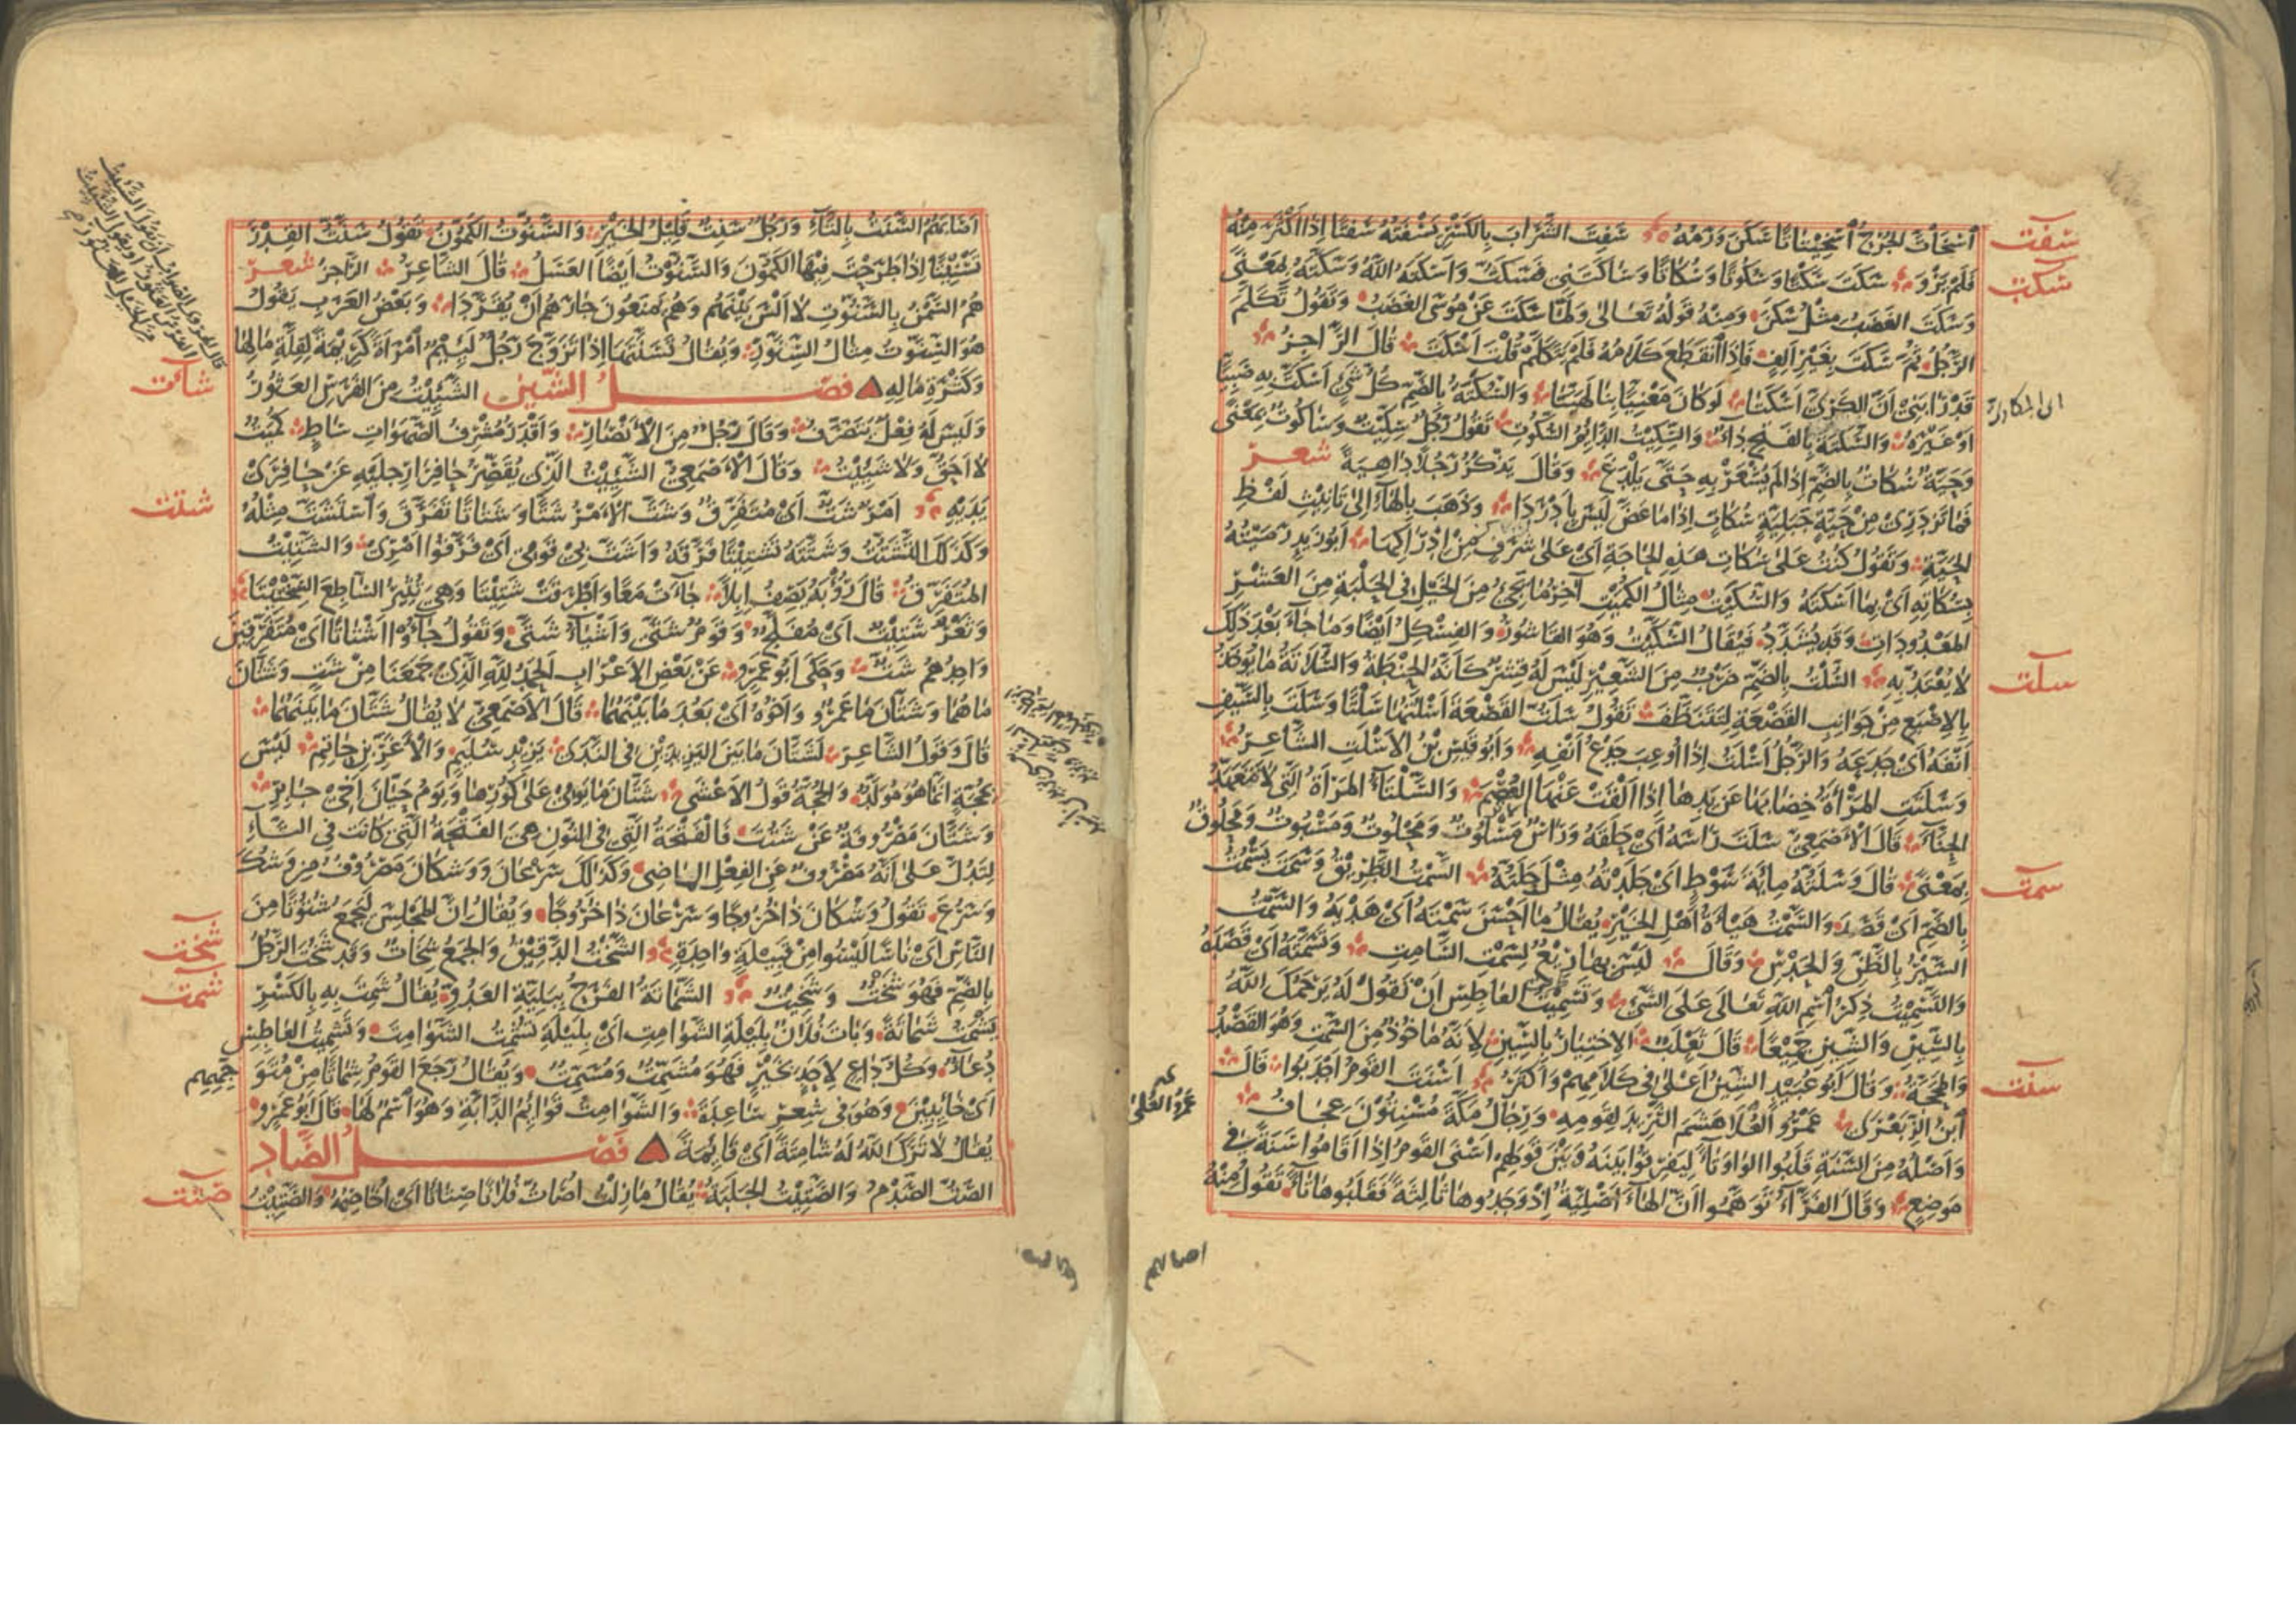 سفت
اسْخَاتَّ الجُرْحُ اسْخِيتَاتًا سَكَنَ وَرَمُهُ سَفِتَ الشَّرَابَ بِالكَسْرِ يَسْفَتُهُ سَفْتًا إِذَا أَكْثَرَ مِنْهُ
سكت
فَلَمْ يَرْوَ سَكَتَ سَكْتًا وَسُكُوتًا وَسُكَاتًا وَسَاكَتَنِي فَسَكَتُّ وَأَسْكَتَهُ اللّٰهُ وَسَكَّتَهُ بِمَعْنًى
وَسَكَتَ الغَضَبُ مِثْلُ سَكَنَ وَمِنْهُ قَوْلُهُ تَعَالَى وَلَمَّا سَكَتَ عَنْ مُوسَى الغَضَبُ وَتَقُولُ تَكَلَّمَ
الرَّجُلُ ثُمَّ سَكَتَ بِغَيْرِ أَلِفٍ فَإِذَا انْقَطَعَ كَلَامُهُ فَلَمْ يَتَكَلَّمْ قُلْتَ أَسْكَتَ قَالَ الرَّاجِزُ
قَدْ رَابَنِي أَنَّ الكَرِيَّ أَسْكَتَا لَوْ كَانَ مَعْنِيًّا بِنَا لَهَيَّتَا وَالسُّكْتَةُ بِالضَّمِّ كُلُّ شَيْءٍ أَسْكَتَّ بِهِ صَبِيًّا
أَوْ غَيْرَهُ وَالسَّكْتَةُ بِالفَتْحِ دَاءٌ وَالسِّكِّيتُ الدَّائِمُ السُّكُوتِ تَقُولُ رَجُلٌ سِكِّيتٌ وَسَاكُوتٌ بِمَعْنًى
وَحَيَّةٌ سُكَاتٌ بِالضَّمِّ إِذَا لَمْ يُشْعَرْ بِهِ حَتَّى يَلْدَغَ وَقَالَ يَذْكُرُ رَجُلًا دَاهِيَةً شعر
فَمَا تَزْدَرِي مِنْ حَيَّةٍ جَبَلِيَّةٍ سُكَاتٍ إِذَا مَا عَضَّ لَيْسَ بِأَدْرَدَا وَذَهَبَ بِالهَاءِ إِلَى تَأْنِيثِ لَفْظِ
الحَيَّةِ وَتَقُولُ كُنْتُ عَلَى سُكَاتِ هَذِهِ الحَاجَةِ أَيْ عَلَى شَرَفٍ مِنْ إِدْرَاكِهَا أَبُو زَيْدٍ رَمَيْتُهُ
بِسُكَاتِهِ أَيْ بِمَا أَسْكَتَهُ وَالسُّكَيْتُ مِثَالُ الكُمَيْتِ آخِرُ مَا يَجِيءُ مِنَ الخَيْلِ فِي الحَلْبَةِ مِنَ العَشْرِ
المَعْدُودَاتِ وَقَدْ يُشَدَّدُ فَيُقَالُ السُّكَّيْتُ وَهُوَ القَاشُورُ وَالفِسْكِلُ أَيْضًا وَمَا جَاءَ بَعْدَ ذَلِكَ
سلت
لَا يُعْتَدُّ بِهِ السُّلْتُ بِالضَّمِّ ضَرْبٌ مِنَ الشَّعِيرِ لَيْسَ لَهُ قِشْرٌ كَأَنَّهُ الحِنْطَةُ وَالسُّلَاتَةُ مَا يُؤْخَذُ
بِالإِصْبَعِ مِنْ جَوَانِبِ القَصْعَةِ لِتَتَنَظَّفَ تَقُولُ سَلَتُّ القَصْعَةَ أَسْلُتُهَا سَلْتًا وَسَلَتَ بِالسَّيْفِ
أَنْفَهُ أَيْ جَدَعَهُ وَالرَّجُلُ أَسْلَتُ إِذَا أُوعِبَ جَدْعُ أَنْفِهِ وَأَبُو قَيْسِ بْنُ الأَسْلَتِ الشَّاعِرُ
وَسَلَتَتِ المَرْأَةُ خِضَابَهَا عَنْ يَدِهَا إِذَا أَلْقَتْ عَنْهَا العُصْمَ وَالسَّلْتَاءُ المَرْأَةُ الَّتِي لَا تَتَعَهَّدُ
الحِنَّاءَ قَالَ الأَصْمَعِيُّ سَلَتَ رَأْسَهُ أَيْ حَلَقَهُ وَرَأْسٌ مَسْلُوتٌ وَمَحْلُوتٌ وَمَسْبُوتٌ وَمَحْلُوقٌ
سمت
بِمَعْنًى قَالَ وَسَلَتَهُ مِائَةَ سَوْطٍ أَيْ جَلَدْتُهُ مِثْلَ حَلَتُّهُ السَّمْتُ الطَّرِيقُ وَسَمَتَ يَسْمُتُ
بِالضَّمِّ أَيْ قَصَدَ وَالسَّمْتُ هَيْأَةُ أَهْلِ الخَيْرِ يُقَالُ مَا أَحْسَنَ سَمْتَهُ أَيْ هَدْيَهُ وَالسَّمْتُ
السَّيْرُ بِالظَّنِّ وَالحَدْسِ وَقَالَ لَيْسَ بِهَا رِيعٌ لِسَمْتِ السَّامِتِ وَتَسَمَّتَهُ أَيْ قَصَدَهُ
وَالتَّسْمِيتُ ذِكْرُ اسْمِ اللّٰهِ تَعَالَى عَلَى الشَّيْءِ وَتَسْمِيتُ العَاطِسِ أَنْ تَقُولَ لَهُ يَرْحَمُكَ اللّٰهُ
بِالسِّينِ وَالشِّينِ جَمِيعًا قَالَ ثَعْلَبٌ الاخْتِيَارُ بِالسِّينِ لِأَنَّهُ مَأْخُوذٌ مِنَ السَّمْتِ وَهُوَ القَصْدُ
سنت
وَالمَحَجَّةُ وَقَالَ أَبُو عُبَيْدٍ الشِّينُ أَعْلَى فِي كَلَامِهِمْ وَأَكْثَرُ أَسْنَتَ القَوْمُ أَجْدَبُوا قَالَ
ابْنُ الزِّبَعْرَى عَمْرُو العُلَا هَشَمَ الثَّرِيدَ لِقَوْمِهِ وَرِجَالُ مَكَّةَ مُسْنِتُونَ عِجَافُ
عمرو العلى
وَأَصْلُهُ مِنَ السَّنَةِ قَلَبُوا الوَاوَ تَاءً لِيُفَرِّقُوا بَيْنَهُ وَبَيْنَ قَوْلِهِمْ أَسْنَى القَوْمُ إِذَا أَقَامُوا سَنَةً فِي
مَوْضِعٍ وَقَالَ الفَرَّاءُ تَوَهَّمُوا أَنَّ الهَاءَ أَصْلِيَّةٌ إِذْ وَجَدُوهَا ثَالِثَةً فَقَلَبُوهَا تَاءً تَقُولُ مِنْهُ
اصابهم
أَصَابَهُمُ السَّنَتُ بِالتَّاءِ وَرَجُلٌ سَنِتٌ قَلِيلُ الخَيْرِ وَالسَّنُّوتُ الكَمُّونُ تَقُولُ سَنَّتُّ القِدْرَ
تَسْنِيتًا إِذَا طَرَحْتَ فِيهَا الكَمُّونَ وَالسَّنُّوتُ أَيْضًا العَسَلُ قَالَ الشَّاعِرُ الرَّاجِزُ شعر
هُمُ السَّمْنُ بِالسَّنُّوتِ لَا أَلْسَ بَيْنَهُمْ وَهُمْ يَمْنَعُونَ جَارَهُمْ أَنْ يُقَرَّدَا وَبَعْضُ العَرَبِ يَقُولُ
هُوَ السِّنَّوْتُ مِثَالُ السِّنَّوْرِ وَيُقَالُ تَسَنَّتَهَا إِذَا تَزَوَّجَ رَجُلٌ لَئِيمٌ امْرَأَةً كَرِيمَةً لِقِلَّةِ مَالِهَا
شات
وَكَثْرَةِ مَالِهِ فصل الشين الشَّئِيتُ مِنَ الفَرَسِ العَثُورُ
وَلَيْسَ لَهُ فِعْلٌ يَتَصَرَّفُ وَقَالَ رَجُلٌ مِنَ الأَنْصَارِ وَأَقْدَرُ مُشْرِفُ الصَّهَوَاتِ سَاطٍ كُمَيْتٌ
لَا أَحَقُّ وَلَا شَئِيتُ وَقَالَ الأَصْمَعِيُّ الشَّئِيتُ الَّذِي يُقَصِّرُ حَافِرَا رِجْلَيْهِ عَنْ حَافِرَيْ
شتت
يَدَيْهِ أَمْرٌ شَتٌّ أَيْ مُتَفَرِّقٌ وَشَتَّ الأَمْرُ شَتًّا وَشَتَاتًا تَفَرَّقَ وَاسْتَشَتَّ مِثْلُهُ
وَكَذَلِكَ التَّشَتُّتُ وَشَتَّتَهُ تَشْتِيتًا فَرَّقَهُ وَأَشَتَّ بِي قَوْمِي أَيْ فَرَّقُوا أَمْرِي وَالشَّتِيتُ
المُتَفَرِّقُ قَالَ رُؤْبَةُ يَصِفُ إِبِلًا جَاءَتْ مَعًا وَأَطْرَقَتْ شَتِيتَا وَهِيَ تُثِيرُ السَّاطِعَ السِّخْتِيتَا
وَثَغْرٌ شَتِيتٌ أَيْ مُفَلَّجٌ وَقَوْمٌ شَتَّى وَأَشْيَاءُ شَتَّى وَتَقُولُ جَاؤُا أَشْتَاتًا أَيْ مُتَفَرِّقِينَ
وَاحِدُهُمْ شَتٌّ وَحَكَى أَبُو عَمْرٍو عَنْ بَعْضِ الأَعْرَابِ الحَمْدُ لِلّٰهِ الَّذِي جَمَعَنَا مِنْ شَتٍّ وَشَتَّانَ
مَا هُمَا وَشَتَّانَ مَا عَمْرٌو وَأَخُوهُ أَيْ بَعُدَ مَا بَيْنَهُمَا قَالَ الأَصْمَعِيُّ لَا يُقَالُ شَتَّانَ مَا بَيْنَهُمَا
قَالَ وَقَوْلُ الشَّاعِرِ لَشَتَّانَ مَا بَيْنَ اليَزِيدَيْنِ فِي النَّدَى يَزِيدِ سُلَيْمٍ وَالأَغَرِّ بْنِ حَاتِمِ لَيْسَ
بِحُجَّةٍ إِنَّمَا هُوَ مُوَلَّدٌ وَالحُجَّةُ قَوْلُ الأَعْشَى شَتَّانَ مَا يَوْمِي عَلَى كُورِهَا وَيَوْمُ حَيَّانَ أَخِي جَابِرِ
وَشَتَّانَ مَصْرُوفَةٌ عَنْ شَتُتَ فَالْفَتْحَةُ الَّتِي فِي النُّونِ هِيَ الفَتْحَةُ الَّتِي كَانَتْ فِي التَّاءِ
لِتَدُلَّ عَلَى أَنَّهُ مَصْرُوفٌ عَنِ الفِعْلِ المَاضِي وَكَذَلِكَ سَرْعَانَ وَوَشْكَانَ مَصْرُوفٌ مِنْ وَشُكَ
وَسَرُعَ تَقُولُ وَشْكَانَ ذَا خُرُوجًا وَسَرْعَانَ ذَا خُرُوجًا وَيُقَالُ إِنَّ المَجْلِسَ لَيَجْمَعُ شُتُوتًا مِنَ
شخت
النَّاسِ أَيْ نَاسًا لَيْسُوا مِنْ قَبِيلَةٍ وَاحِدَةٍ الشَّخْتُ الدَّقِيقُ وَالجَمْعُ شِخَاتٌ وَقَدْ شَخُتَ الرَّجُلُ
شمت
بِالضَّمِّ فَهُوَ شَخْتٌ وَشَخِيتٌ الشَّمَاتَةُ الفَرَحُ بِبَلِيَّةِ العَدُوِّ يُقَالُ شَمِتَ بِهِ بِالكَسْرِ
يَشْمَتُ شَمَاتَةً وَبَاتَ فُلَانٌ بِلَيْلَةِ الشَّوَامِتِ أَيْ بِلَيْلَةٍ تُشْمِتُ الشَّوَامِتَ وَتَشْمِيتُ العَاطِسِ
دُعَاءٌ وَكُلُّ دَاعٍ لِأَحَدٍ بِخَيْرٍ فَهُوَ مُشَمِّتٌ وَمُسَمِّتٌ وَيُقَالُ رَجَعَ القَوْمُ شِمَاتًا مِنْ مُتَوَجِّهِهِمْ
أَيْ خَائِبِينَ وَهُوَ فِي شِعْرِ سَاعِدَةَ وَالشَّوَامِتُ قَوَائِمُ الدَّابَّةِ وَهُوَ اسْمٌ لَهَا قَالَ أَبُو عَمْرٍو
يُقَالُ لَا تَرَكَ اللّٰهُ لَهُ شَامِتَةً أَيْ قَائِمَةً فصل الصاد
صتت
الصَّتُّ الصَّدْمُ وَالصَّتِيتُ الجَلَبَةُ يُقَالُ مَا زِلْتُ أُصَاتُّ فُلَانًا صِتَاتًا أَيْ أُخَاصِمُهُ وَالصَّتِيتُ